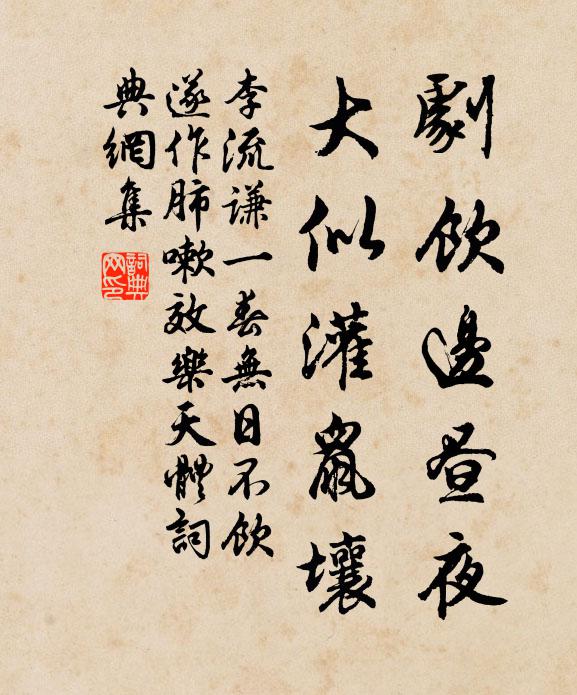 劇飲邊晝夜
大似灌鼠壤
李流謙一春無日不飲
遂作肺嗽效樂天體詞
典網集
詞典網印